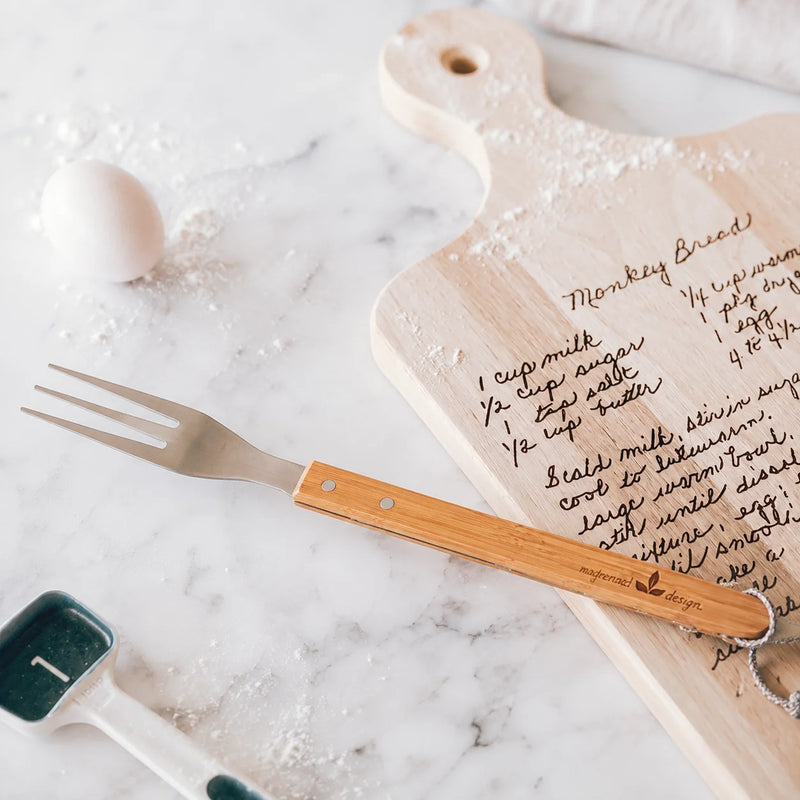 Monkey Bread
1 cup milk
1/2 cup sugar
1 tsp salt
1/2 cup butter
1/4 cup warm
1 pkg dry
1 egg
4 to 4 1/2
Scald milk, stir in sugar
cool to lukewarm.
large warm bowl.
stir until dissol
mixture, egg,
til smooth
ke a
madrennd
design
1